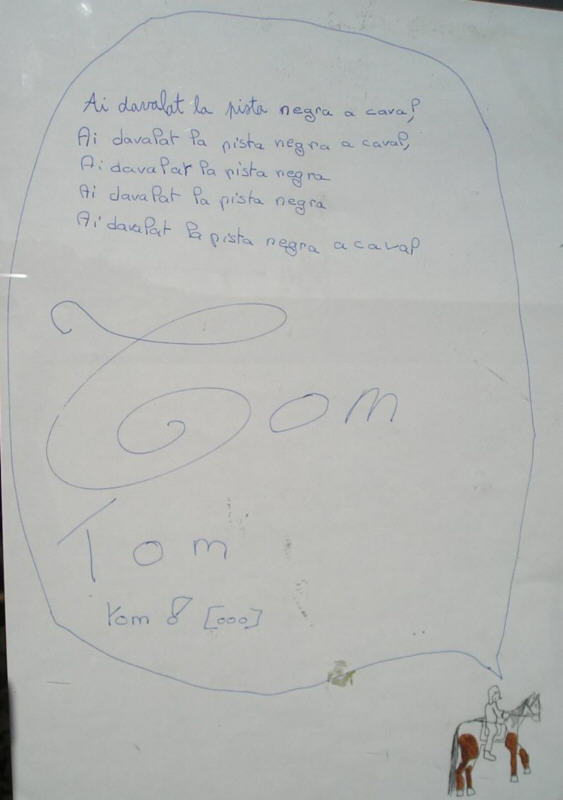 Ai davalat la pista negra a caval,
Ai davalat la pista negra a caval,
Ai davalat la pista negra
Ai davalat la pista negra
Ai davalat la pista negra a caval
Tom
Tom
Tom 8 [ooo]